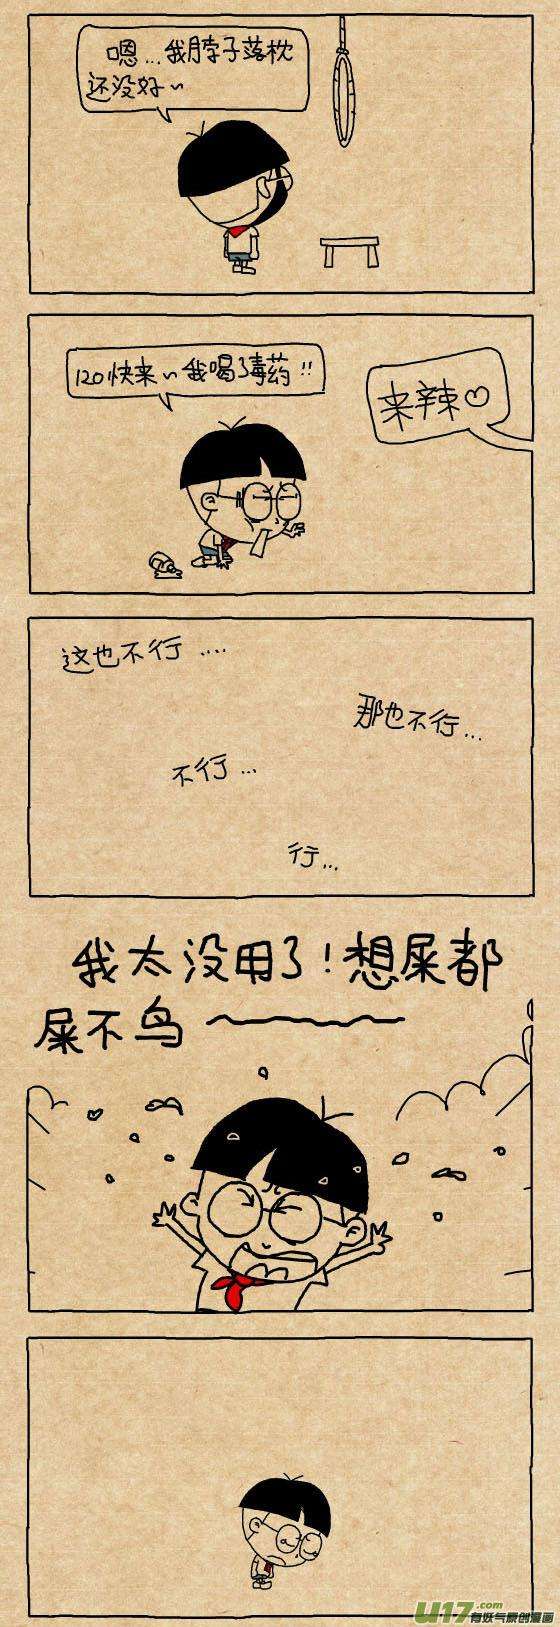 嗯...我脖子落枕
还没好~
120快来~我喝了毒药!!
来辣♡
这也不行....
那也不行...
不行...
行...
我太没用了!想屎都
屎不鸟~
U17.com
有妖气原创漫画